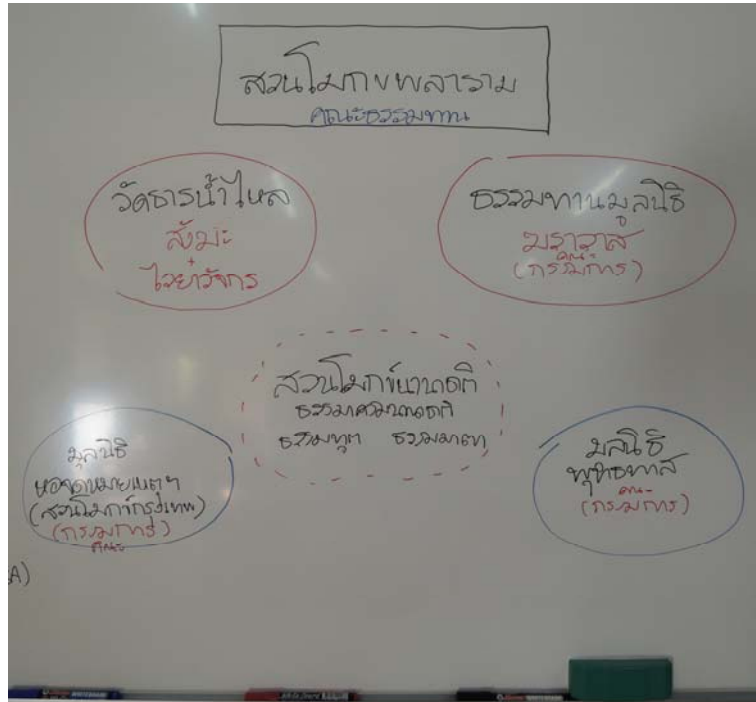 สวนโมกขพลาราม
คณะธรรมทาน
วัดธารน้ำไหล
สังฆะ
ไวยาวัจกร
ธรรมทานมูลนิธิ
ฆราวาส
คณะ
(กรรมการ)
สวนโมกข์นานาชาติ
ธรรมาศรมนานาชาติ
ธรรมทูต ธรรมมาตา
มูลนิธิ
หอจดหมายเหตุฯ
(สวนโมกข์กรุงเทพ)
(กรรมการ)
คณะ
มูลนิธิ
พุทธทาส
คณะ
(กรรมการ)
A)